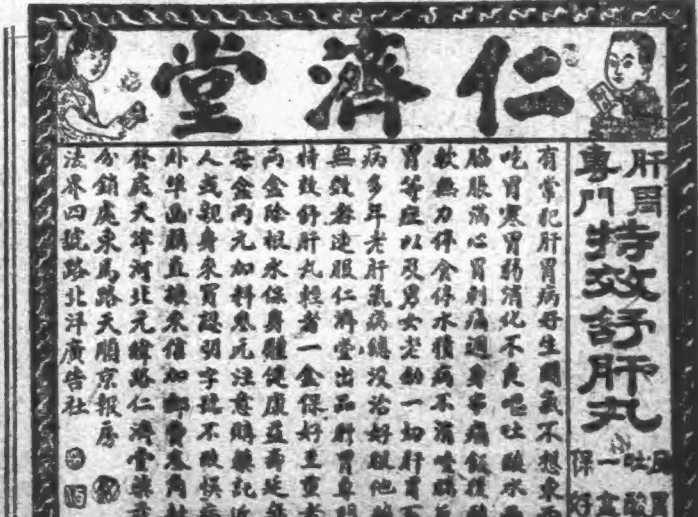 仁濟堂
肝胃專門
特效舒肝丸
吐酸
一盒保好
有常犯肝胃病好生悶氣不想東
吃胃寒胃弱消化不良嘔吐酸水
腸脹滿心胃刺痛週身串痛飯後
軟無力停食停水積病不消
胃等症以及男女老幼一切肝胃
病多年老肝氣病總没治好服他
無效者速服仁濟堂出品肝胃專門
特效舒肝丸輕者一盒保好重者
兩盒除根永保身體健康益壽延年
每盒兩元加料叁元注意購藥記
人或親身來買認明字號不致悞
外埠函購直接來信加郵費叁角
發處天津河北元緯路仁濟堂藥
分銷處東馬路天順京報房
法界四號路北洋廣告社